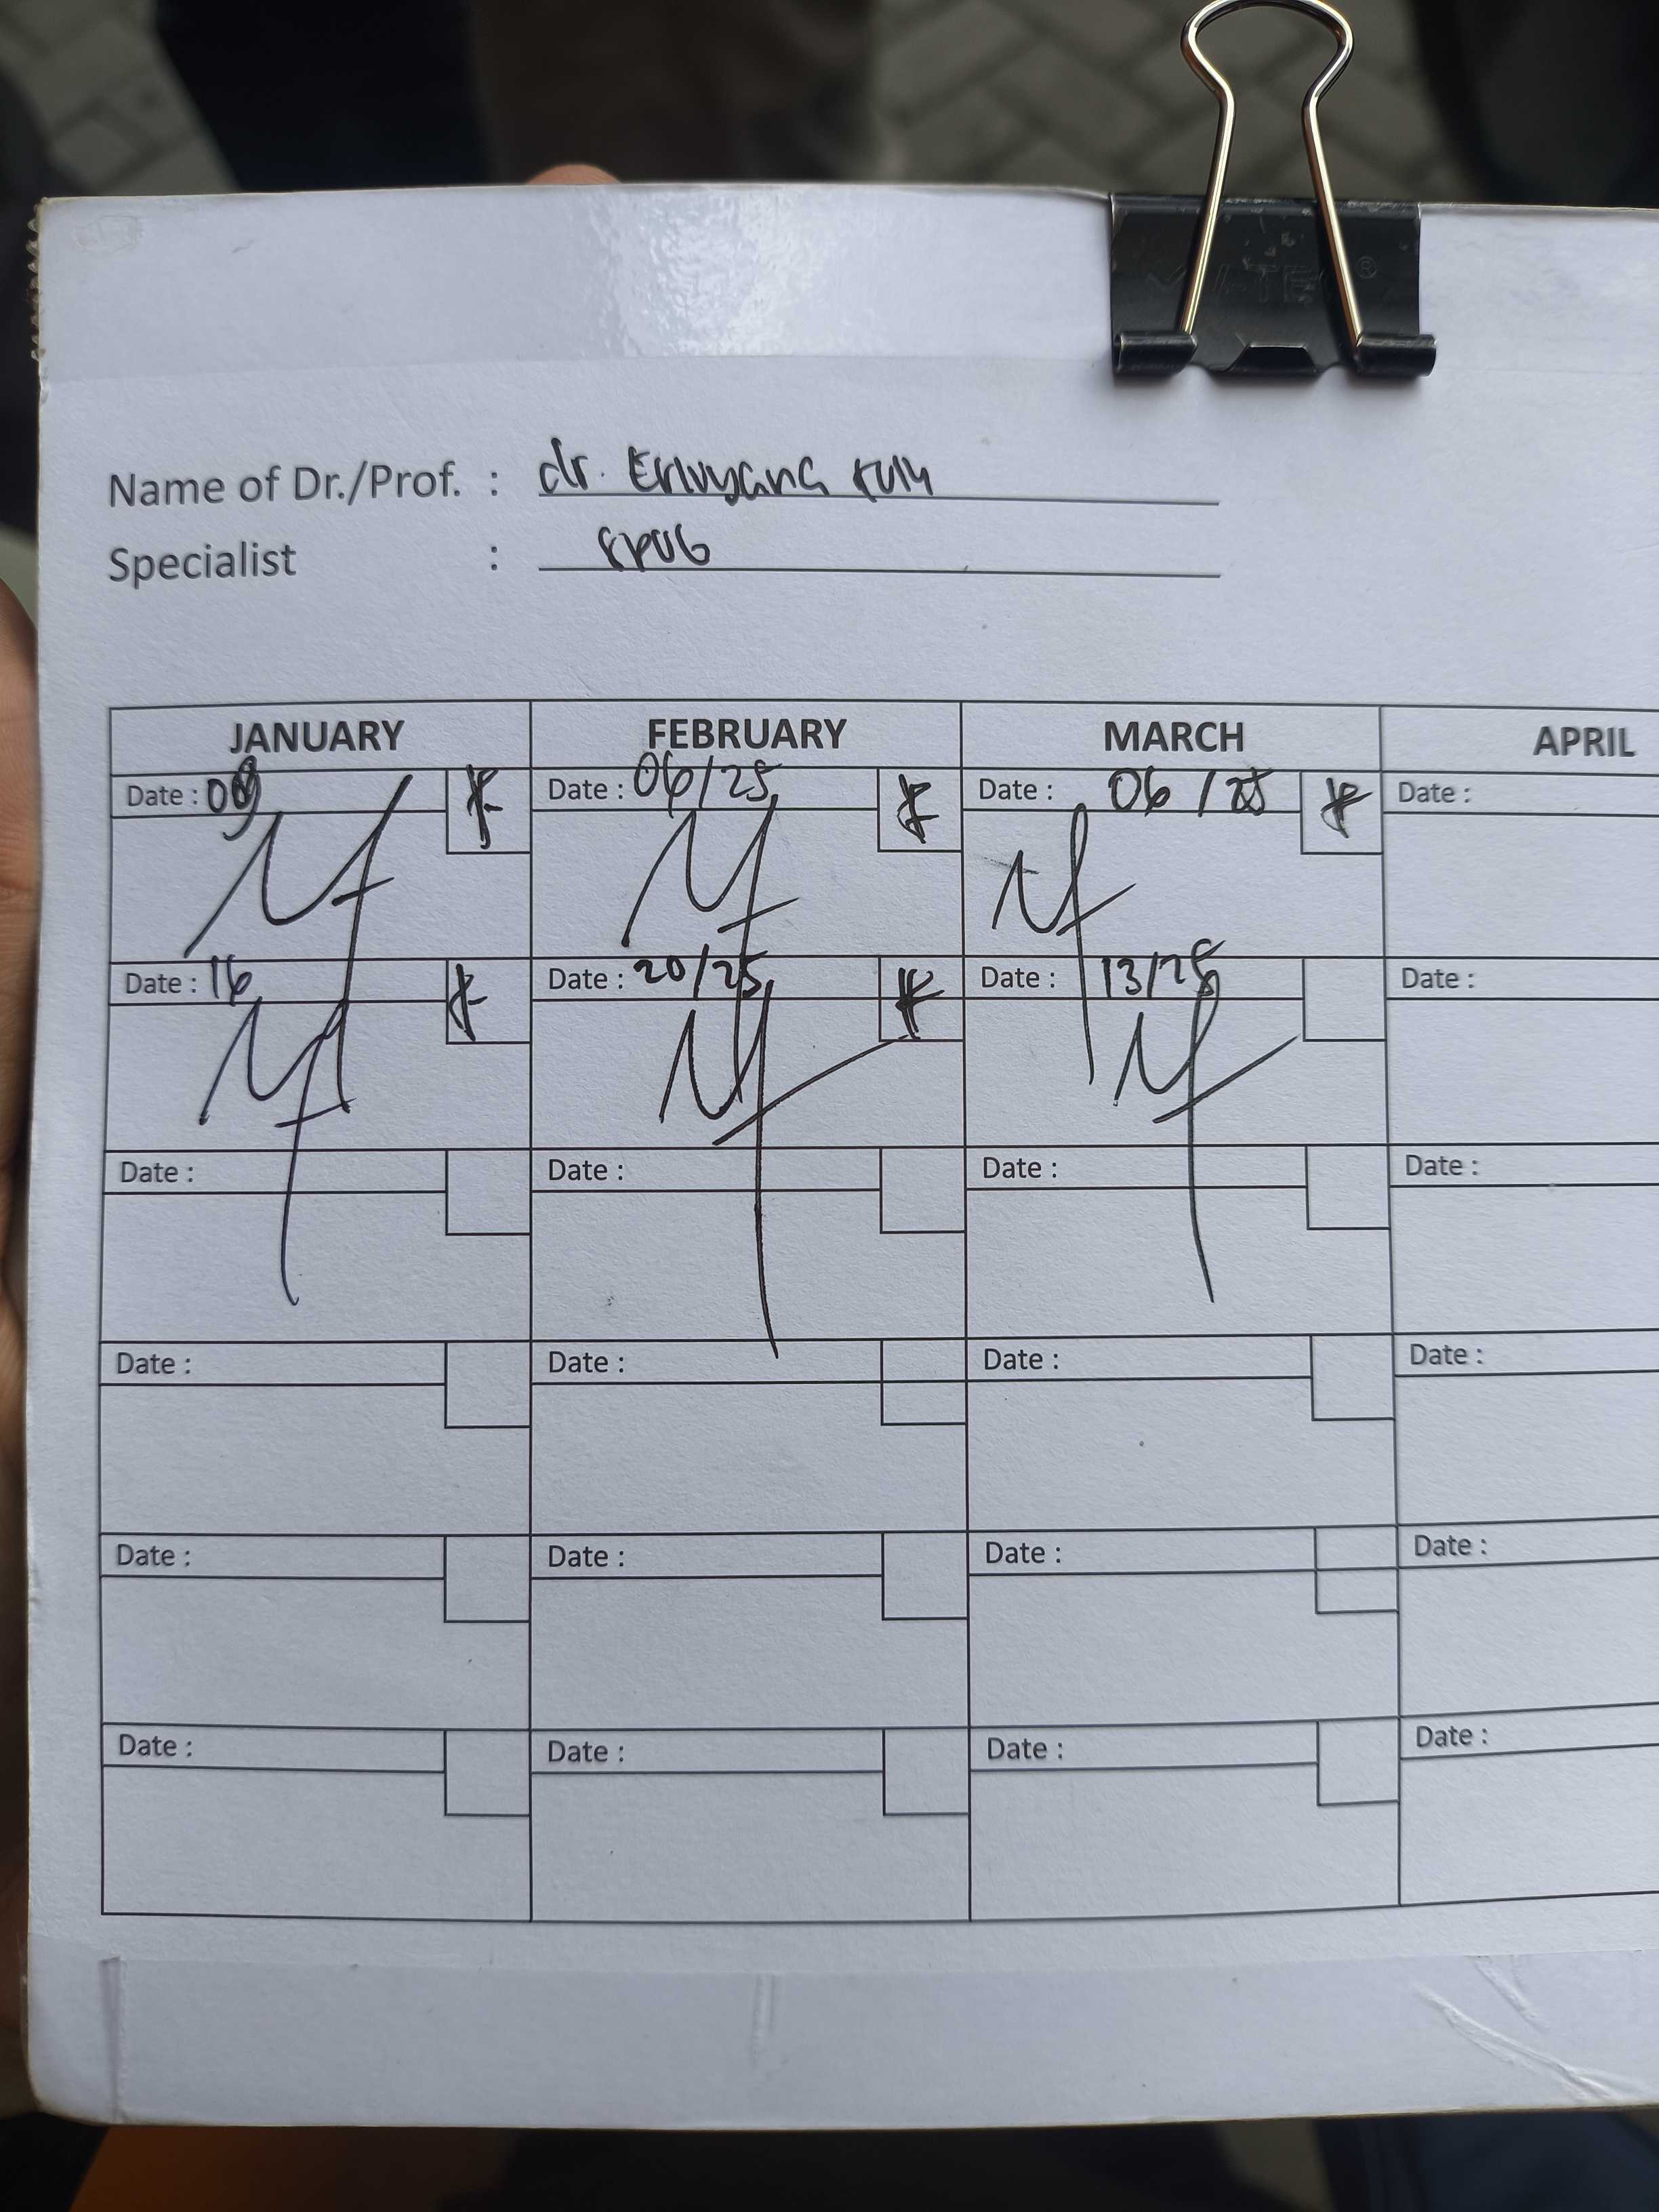 Name of Dr./Prof. : dr. Erlvyana
Specialist : SPOG
JANUARY FEBRUARY MARCH APRIL
Date : 09 Date : 06/25 Date : 06/25 Date :
Date : 16 Date : 20/25 Date : 13/25 Date :
Date : Date : Date : Date :
Date : Date : Date : Date :
Date : Date : Date : Date :
Date : Date : Date : Date :